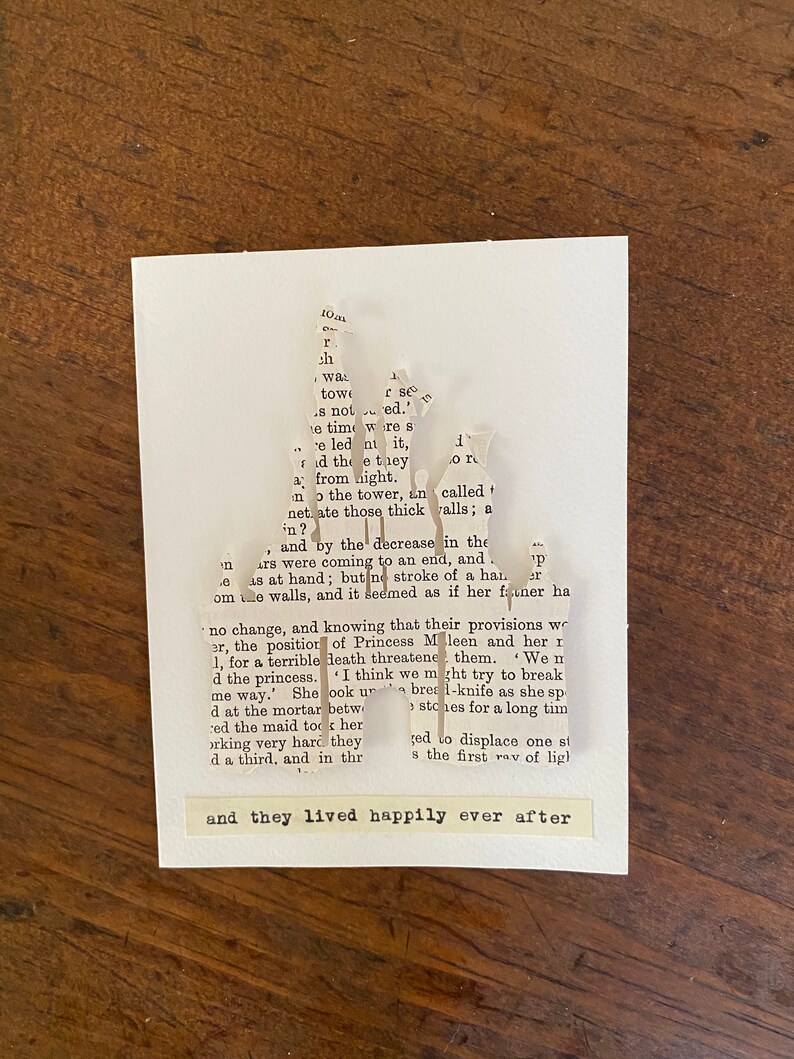 r
ch
was
towe r se
s not red.'
e time were s
re led nt it, d
and the e they o re
from night.
n o the tower, an called
net ate those thick walls; a
in?
and by the decrease in the
en ars were coming to an end, and pp
as at hand; but no stroke of a ha er
om the walls, and it seemed as if her father ha
no change, and knowing that their provisions wo
er, the position of Princess M leen and her m
l, for a terrible death threatene them. 'We m
d the princess. 'I think we might try to break
me way.' She ook up the bread-knife as she sp
d at the mortar betw e stones for a long tim
red the maid took her
orking very hard they ged to displace one st
d a third, and in thr s the first ray of ligh
and they lived happily ever after